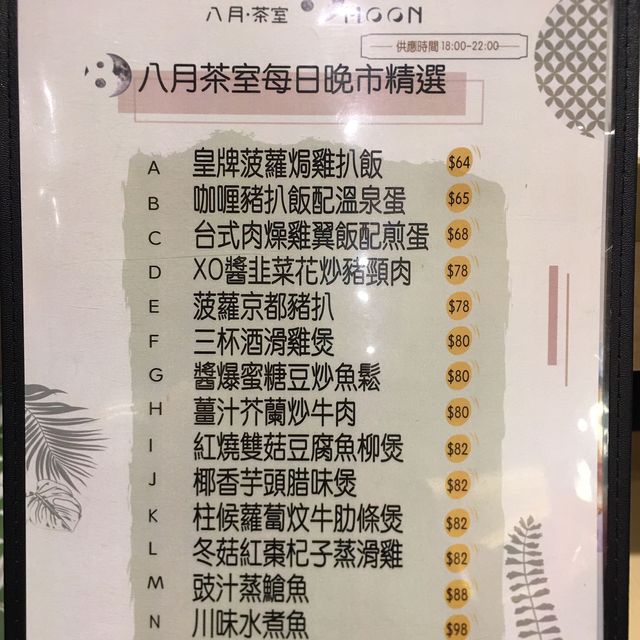 八月·茶室 MOON
供應時間 18:00-22:00
八月茶室每日晚市精選
A 皇牌菠蘿焗雞扒飯 $64
B 咖喱豬扒飯配溫泉蛋 $65
C 台式肉燥雞翼飯配煎蛋 $68
D XO醬韭菜花炒豬頸肉 $78
E 菠蘿京都豬扒 $78
F 三杯酒滑雞煲 $80
G 醬爆蜜糖豆炒魚鬆 $80
H 薑汁芥蘭炒牛肉 $80
I 紅燒雙菇豆腐魚柳煲 $82
J 椰香芋頭腊味煲 $82
K 柱候蘿蔔炆牛肋條煲 $82
L 冬菇紅棗杞子蒸滑雞 $82
M 豉汁蒸鯧魚 $88
N 川味水煮魚 $98